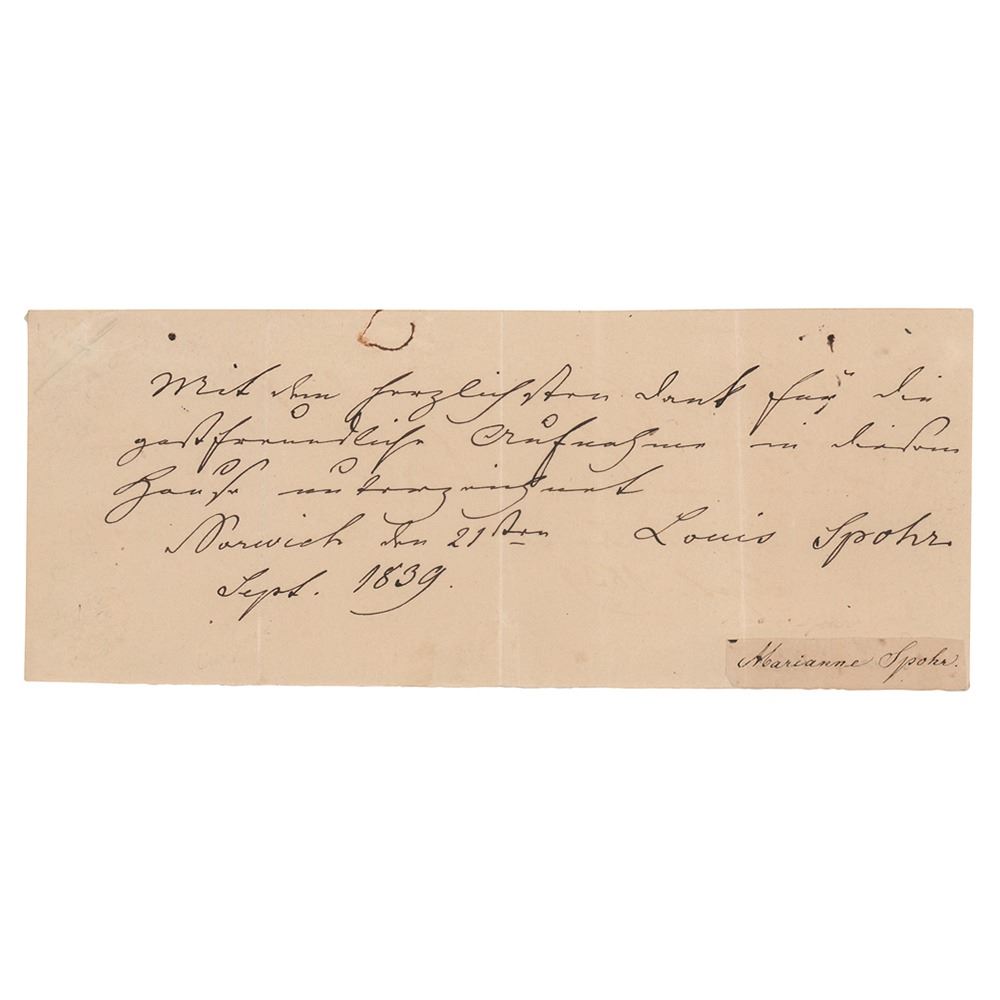 Mit dem herzlichsten Dank für die
gastfreundliche Aufnahme in diesem
Hause unterzeichnet
Norwich den 21sten Louis Spohr.
Sept. 1839.
Marianne Spohr.